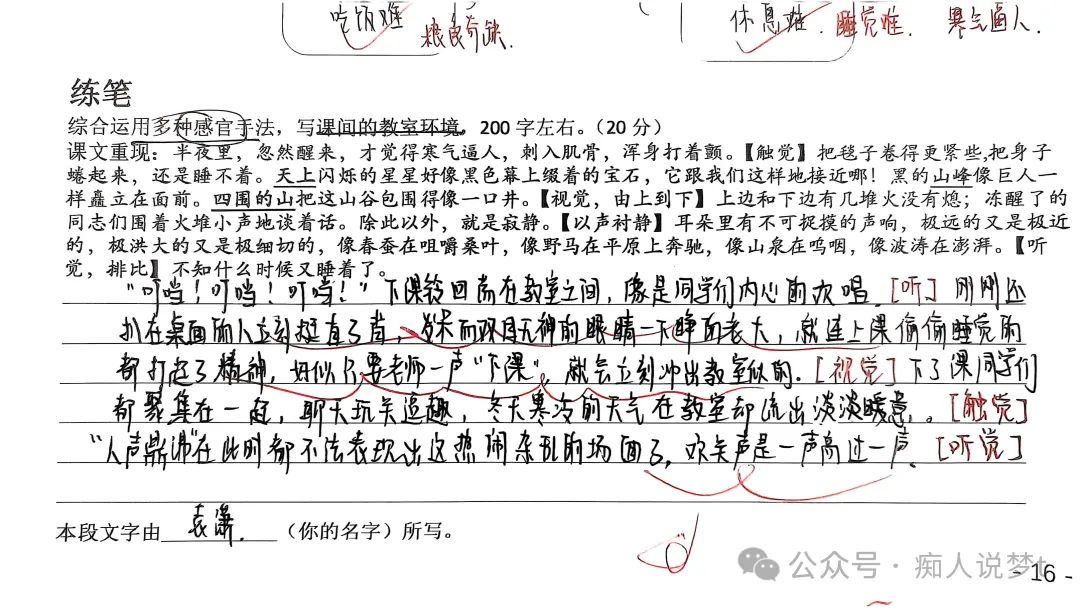 吃饭难
粮食奇缺.
休息难.睡觉难.寒气逼人.
练笔
综合运用多种感官手法，写课间的教室环境。200 字左右。（20 分）
课文重现：半夜里，忽然醒来，才觉得寒气逼人，刺入肌骨，浑身打着颤。【触觉】把毯子卷得更紧些,把身子
蜷起来，还是睡不着。天上闪烁的星星好像黑色幕上缀着的宝石，它跟我们这样地接近哪！黑的山峰像巨人一
样矗立在面前。四围的山把这山谷包围得像一口井。【视觉，由上到下】上边和下边有几堆火没有熄；冻醒了的
同志们围着火堆小声地谈着话。除此以外，就是寂静。【以声衬静】耳朵里有不可捉摸的声响，极远的又是极近
的，极洪大的又是极细切的，像春蚕在咀嚼桑叶，像野马在平原上奔驰，像山泉在呜咽，像波涛在澎湃。【听
觉，排比】不知什么时候又睡着了。
“叮当！叮当！叮当！”下课铃回荡在教室之间，像是同学们内心的欢唱.[听]刚刚还
趴在桌面的人立刻挺直了背，困木而双目无神的眼睛一下睁的老大，就连上课偷偷睡觉的
都打起了精神，好似只要老师一声“下课”，就会立刻冲出教室似的.[视觉]下了课同学们
都聚集在一起，聊天玩笑逗趣，冬天寒冷的天气在教室却流出淡淡暖意.。[触觉]
“人声鼎沸”在此时都不法表现出这热闹杂乱的场面了，欢笑声是一声高过一声.[听觉]
本段文字由 袁潇.（你的名字）所写。
公众号 · 痴人说梦t
- 16 -